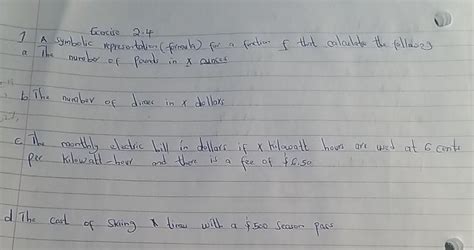 Exercise 2.4
1 A symbolic representation (formula) for a function f that calculates the following
a The number of pounds in x ounces
b The number of dimes in x dollars
c The monthly electric bill in dollars if x kilowatt hours are used at 6 cents
per kilowatt-hour and there is a fee of $6.50
d The cost of skiing x times with a $500 season pass